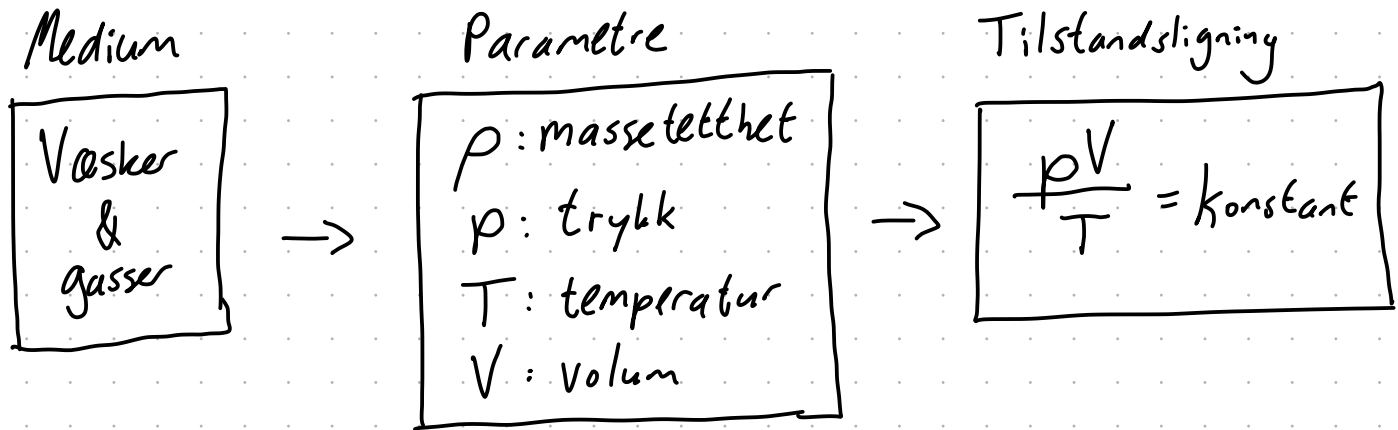 Medium
Væsker
&
gasser
→
Parametre
ρ: massetetthet
p: trykk
T: temperatur
V: volum
→
Tilstandsligning
pV/T = konstant